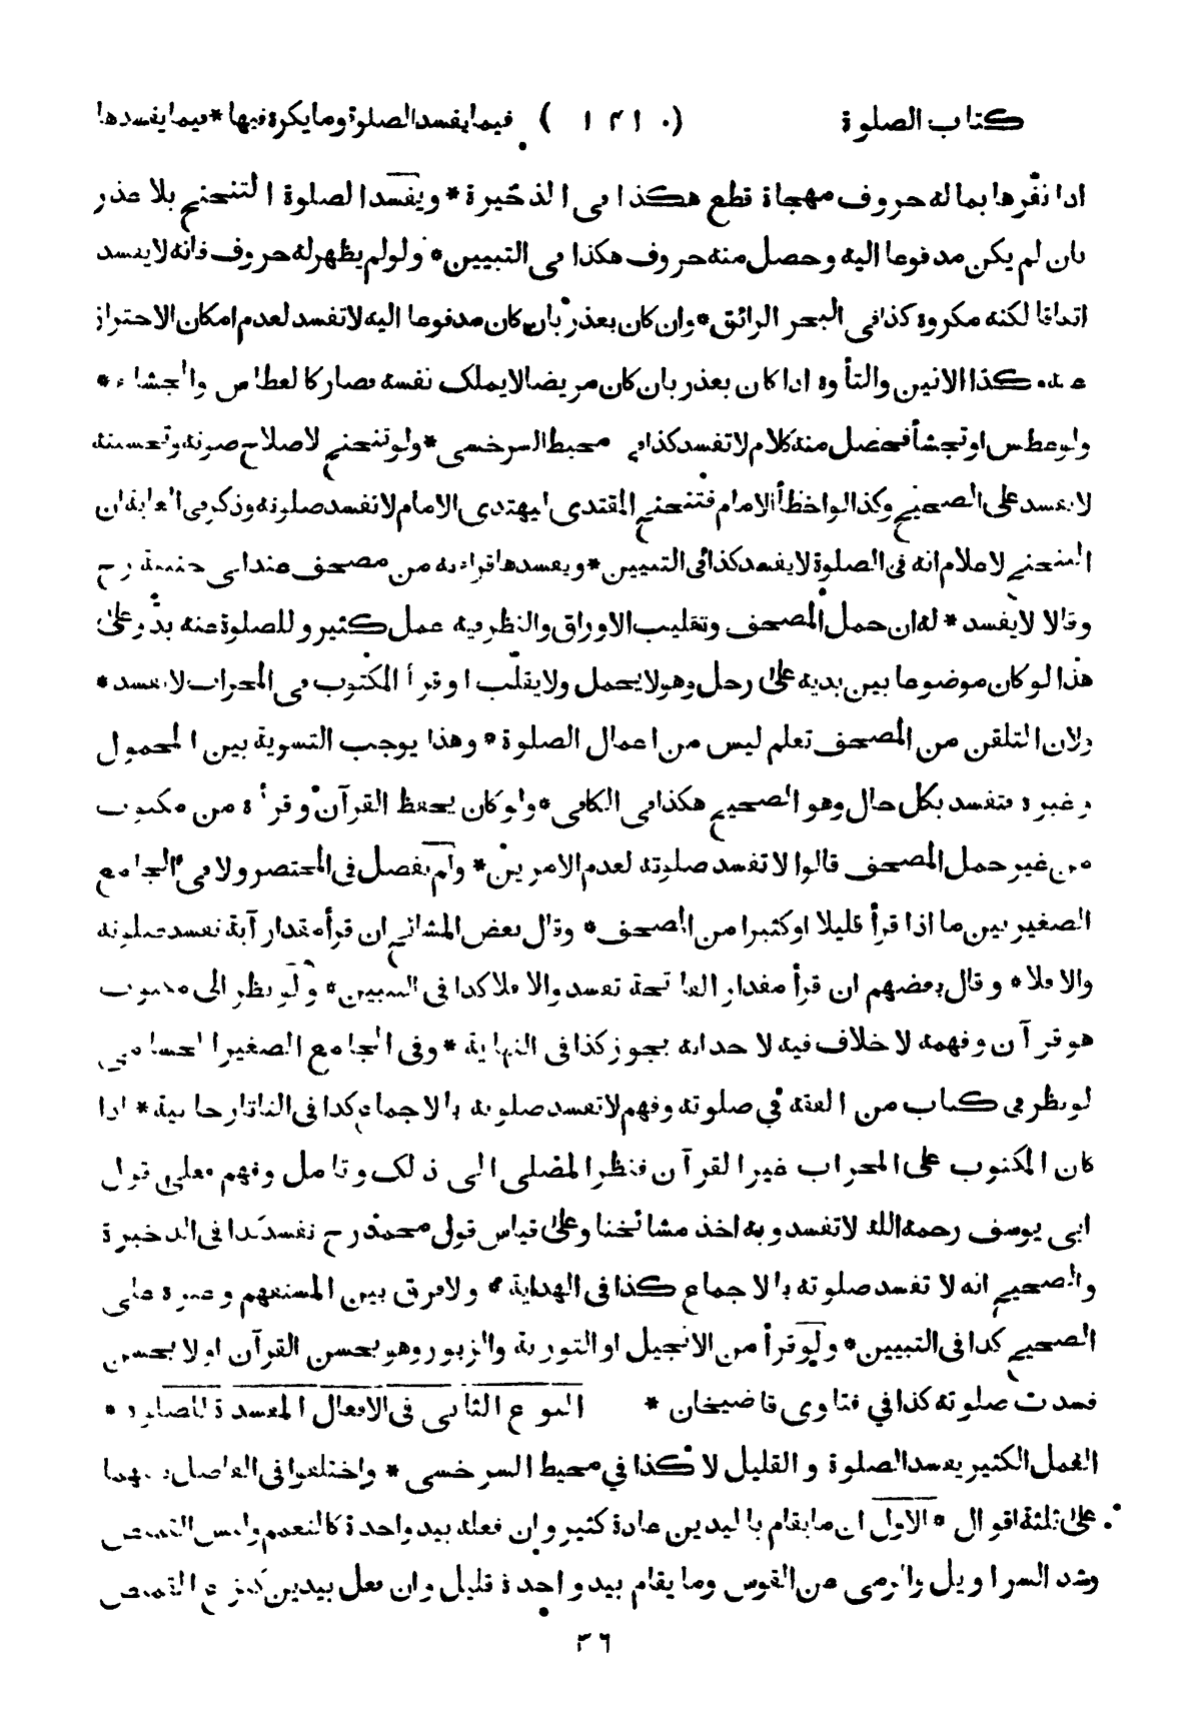 كتاب الصلوة ( ١٤١ ) فيما يفسد الصلوة وما يكره فيها * فيما يفسدها
اذا نفرها بما له حروف مهجاة قطع هكذا فى الذخيرة * ويفسد الصلوة التنحنح بلا عذر
بان لم يكن مدفوعا اليه وحصل منه حروف هكذا فى التبيين * ولو لم يظهر له حروف فانه لا يفسد
اتفاقا لكنه مكروه كذا فى البحر الرائق * وان كان بعذر بان كان مدفوعا اليه لا تفسد لعدم امكان الاحتراز
عنه كذا الانين والتأوه اذا كان بعذر بان كان مريضا لا يملك نفسه فصار كالعطاس والجشاء *
ولو عطس او تجشأ فحصل منه كلام لا تفسد كذا فى محيط السرخسى * ولو تنحنح لاصلاح صوته وتحسينه
لا يفسد على الصحيح وكذا لو اخطأ الامام فتنحنح المقتدى ليهتدى الامام لا تفسد صلوته وذكر فى الغاية ان
التنحنح لاعلام انه فى الصلوة لا يفسد كذا فى التبيين * ويفسدها قراءته من مصحف عند ابى حنيفة رح
وقالا لا يفسد * له ان حمل المصحف وتقليب الاوراق والنظر فيه عمل كثير وللصلوة عنه بد وعلى
هذا لو كان موضوعا بين يديه على رحل وهو لا يحمل ولا يقلب او قرأ المكتوب فى المحراب لا تفسد *
ولان التلقن من المصحف تعلم ليس من اعمال الصلوة * وهذا يوجب التسوية بين المحمول
وغيره فتفسد بكل حال وهو الصحيح هكذا فى الكافى * ولو كان يحفظ القرآن وقرأه من مكتوب
من غير حمل المصحف قالوا لا تفسد صلوته لعدم الامرين * ولم يفصل فى المختصر ولا فى الجامع
الصغير بين ما اذا قرأ قليلا او كثيرا من المصحف * وقال بعض المشائخ ان قرأ مقدار آية تفسد صلوته
والا فلا * وقال بعضهم ان قرأ مقدار الفاتحة تفسد والا فلا كذا فى التبيين * ولو نظر الى مكتوب
هو قرآن وفهمه لا خلاف فيه لاحد انه يجوز كذا فى النهاية * وفى الجامع الصغير الحسامى
لو نظر فى كتاب من الفقه فى صلوته وفهم لا تفسد صلوته بالاجماع كذا فى التاتارخانية * اذا
كان المكتوب على المحراب غير القرآن فنظر المصلى الى ذلك وتامل وفهم فعلى قول
ابى يوسف رحمه الله لا تفسد وبه اخذ مشائخنا وعلى قياس قول محمد رح تفسد كذا فى الذخيرة
والصحيح انه لا تفسد صلوته بالاجماع كذا فى الهداية * ولا فرق بين المستفهم وغيره على
الصحيح كذا فى التبيين * ولو قرأ من الانجيل او التورية والزبور وهو يحسن القرآن او لا يحسن
فسدت صلوته كذا في فتاوى قاضيخان * النوع الثانى فى الافعال المفسدة للصلوة *
العمل الكثير يفسد الصلوة والقليل لا كذا في محيط السرخسى * واختلفوا فى الفاصل بينهما
على ثلثة اقوال * الاول ان ما يقام باليدين عادة كثير وان فعله بيد واحدة كالتعمم ولبس القميص
وشد السراويل والرمى عن القوس وما يقام بيد واحدة قليل وان فعل بيدين كنزع القميص
٣٦